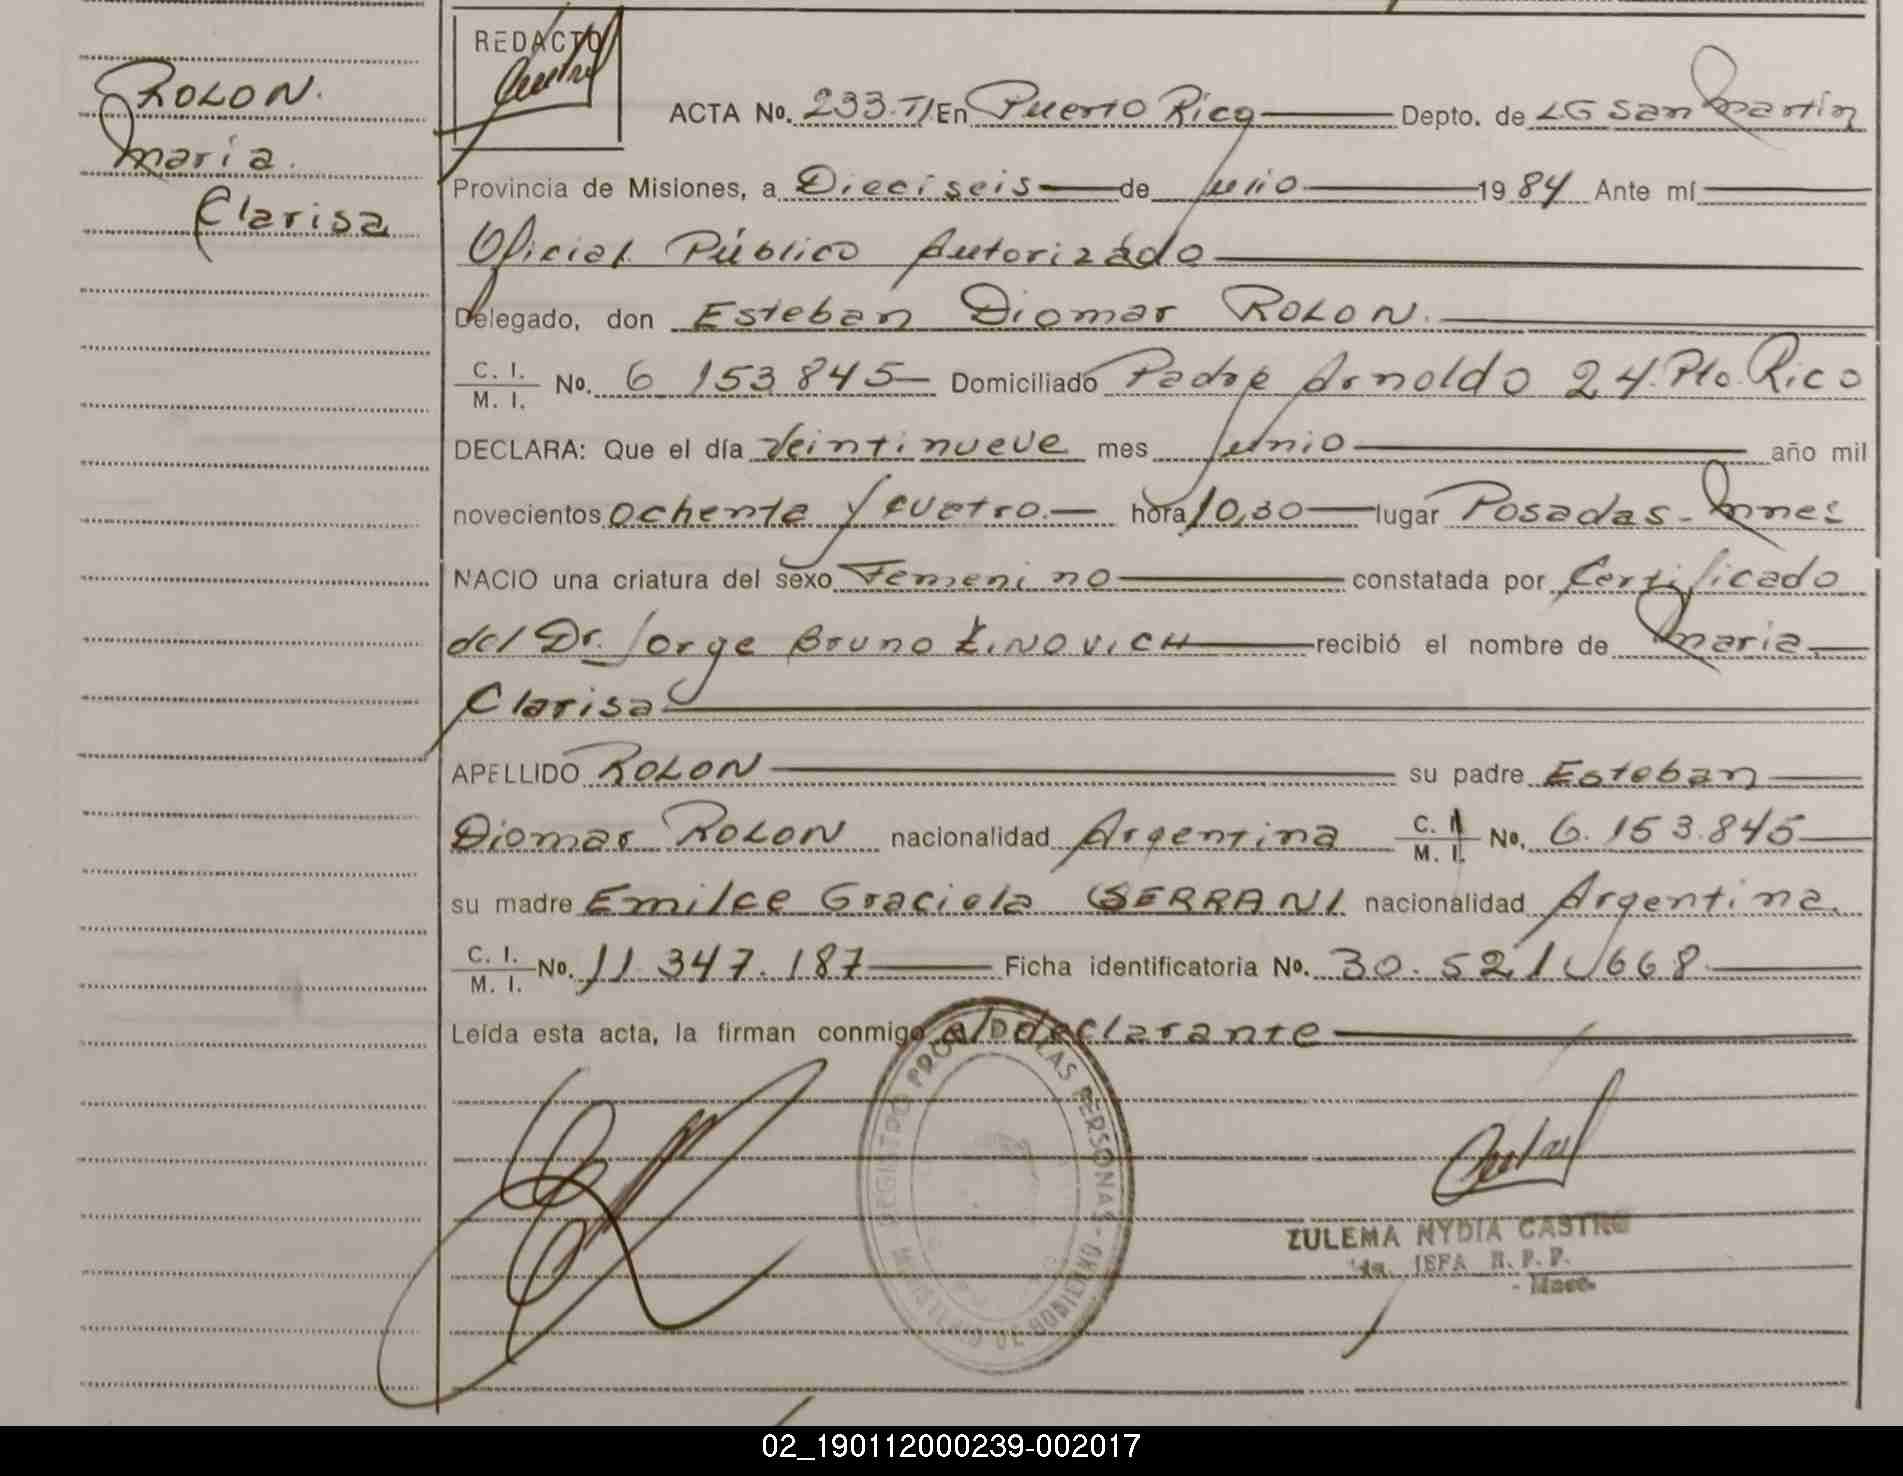 ROLON.
Maria
Clarisa
REDACTO
ACTA No. 233.TI En Puerto Rico Depto. de LG San Martin
Provincia de Misiones, a Dieciseis de Julio 1984 Ante mí
Oficial Público Autorizado
Delegado, don Esteban Diomar ROLON.
C. I. M. I. No. 6 153 845 Domiciliado Padre Arnoldo 24. Pto. Rico
DECLARA: Que el día Veintinueve mes Junio año mil
novecientos ochenta y cuatro. hora 10,30 lugar Posadas - Mnes
NACIO una criatura del sexo Femenino constatada por Certificado
del Dr. Jorge Bruno ZINOVICH recibió el nombre de Maria
Clarisa
APELLIDO ROLON su padre Esteban
Diomar ROLON nacionalidad Argentina C. I. M. I. No. 6.153.845
su madre Emilce Graciela SERRANI nacionalidad Argentina
C. I. M. I. No. 11.347.187 Ficha identificatoria No. 30.521.668
Leída esta acta, la firman conmigo el declarante
REGISTRO PROV. DE LAS PERSONAS - MINISTERIO DE GOBIERNO
ZULEMA NYDIA CASTRO
JEFA R. P. P.
- Mnes.
02_190112000239-002017